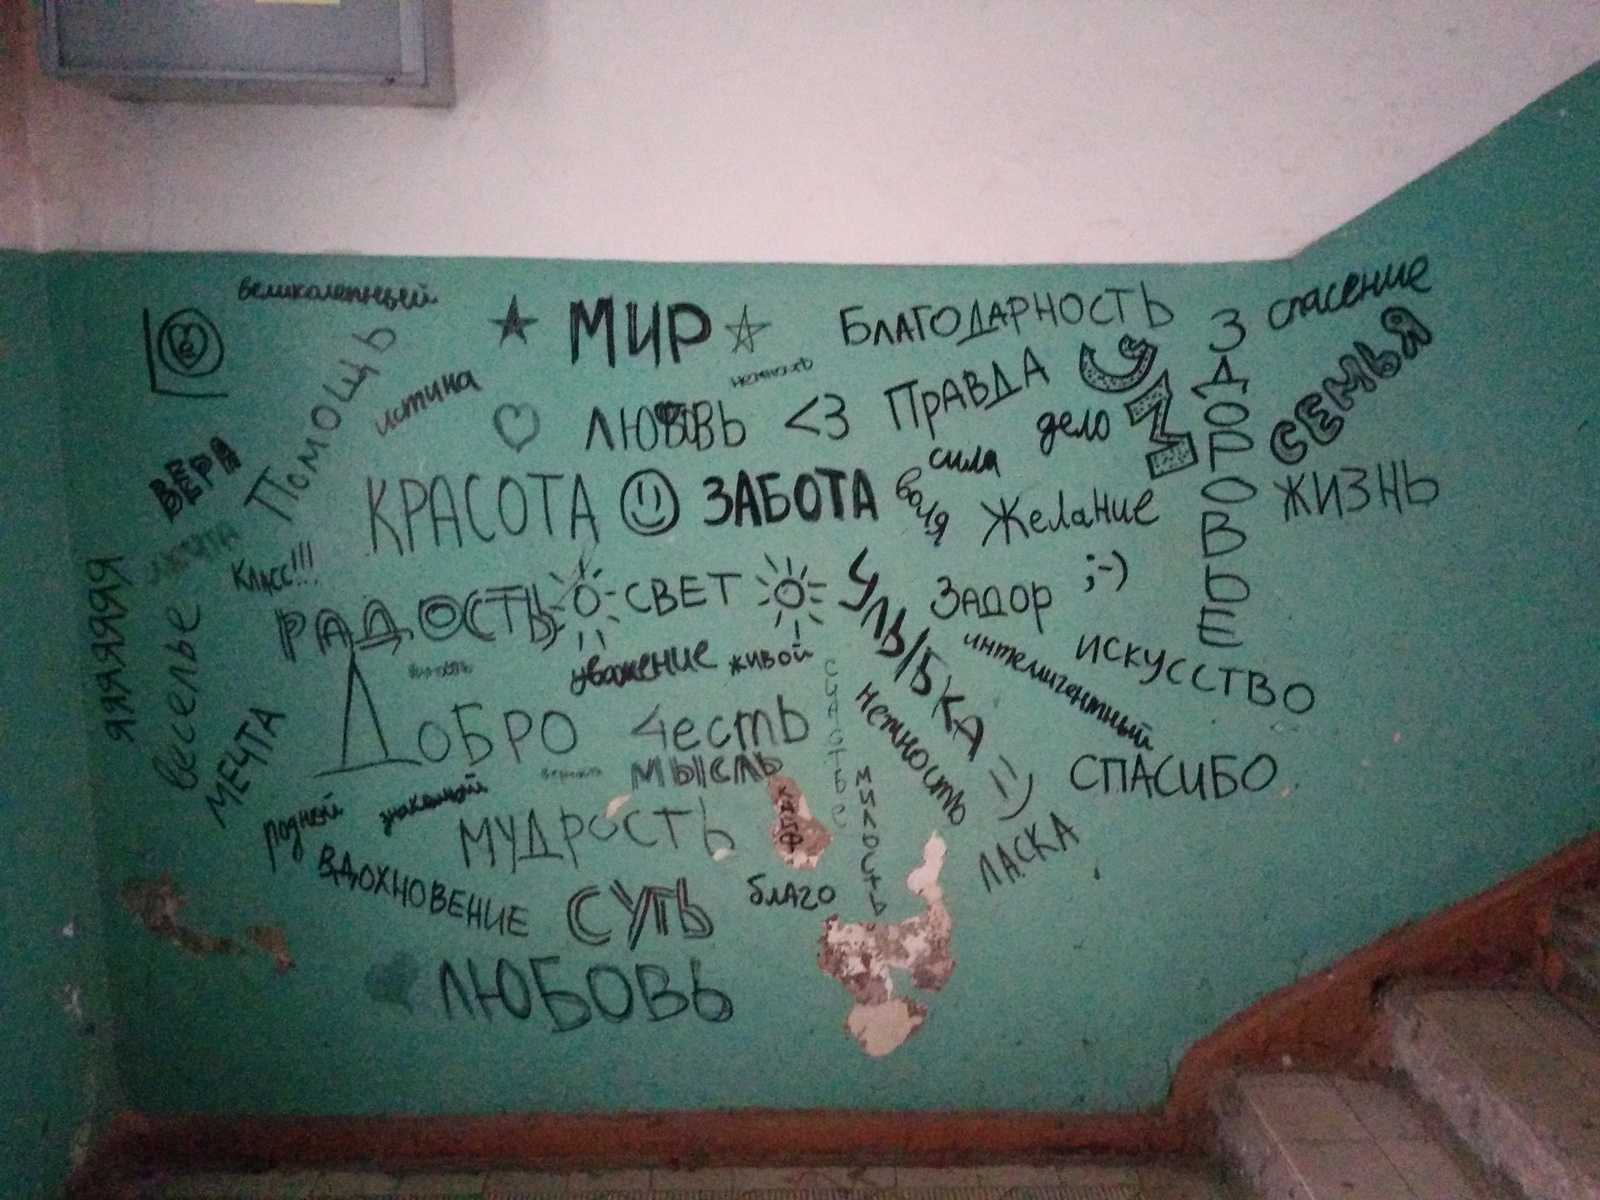 великолепный
МИР
БЛАГОДАРНОСТЬ
спасение
ЗДОРОВЬЕ
ПОМОЩЬ
истина
ЛЮБОВЬ <3
ПРАВДА
СМ
СЕМЬЯ
дело
сила
ВЕРА
КРАСОТА
ЗАБОТА
воля
Желание
ЖИЗНЬ
КЛАСС!!!
ЯЯЯЯЯЯ
веселье
РАДОСТЬ
СВЕТ
УЛЫБКА =)
ЗАДОР ;-)
ИСКУССТВО
интелигентный
уважение
живой
счастье
МЕЧТА
ДОБРО
Честь
нежность
СПАСИБО
МЫСЛЬ
милость
родной
знакомый
МУДРОСТЬ
КАЙФ
ЛАСКА
ВДОХНОВЕНИЕ
СУТЬ
благо
ЛЮБОВЬ